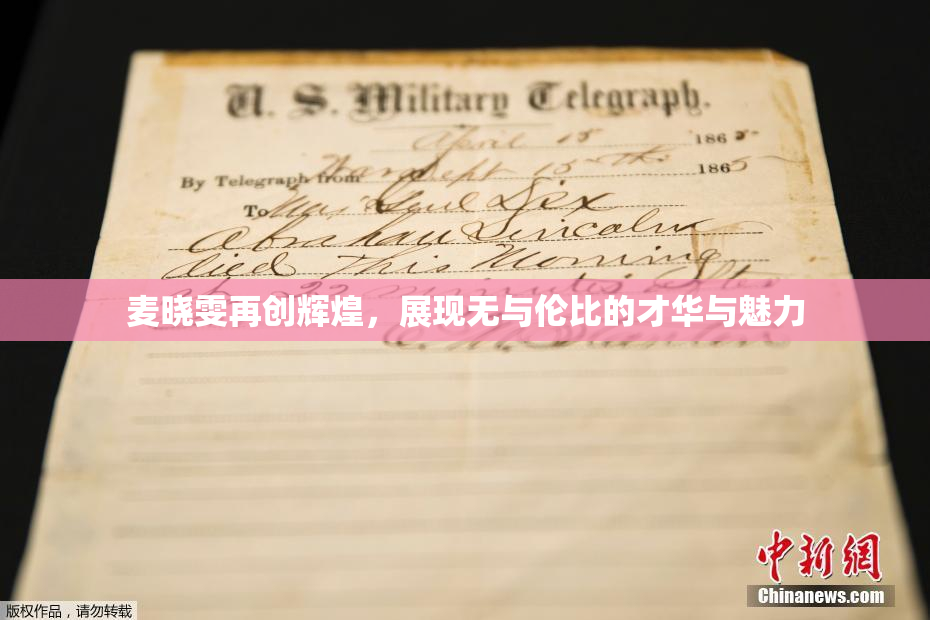 U. S. Military Telegraph.
April 15 1865
By Telegraph from War Dept 15th 1865
To Maj Genl Dix
Abraham Lincoln
died This Morning
at 22 minutes after
麦晓雯再创辉煌，展现无与伦比的才华与魅力
版权作品，请勿转载
中新网
Chinanews.com